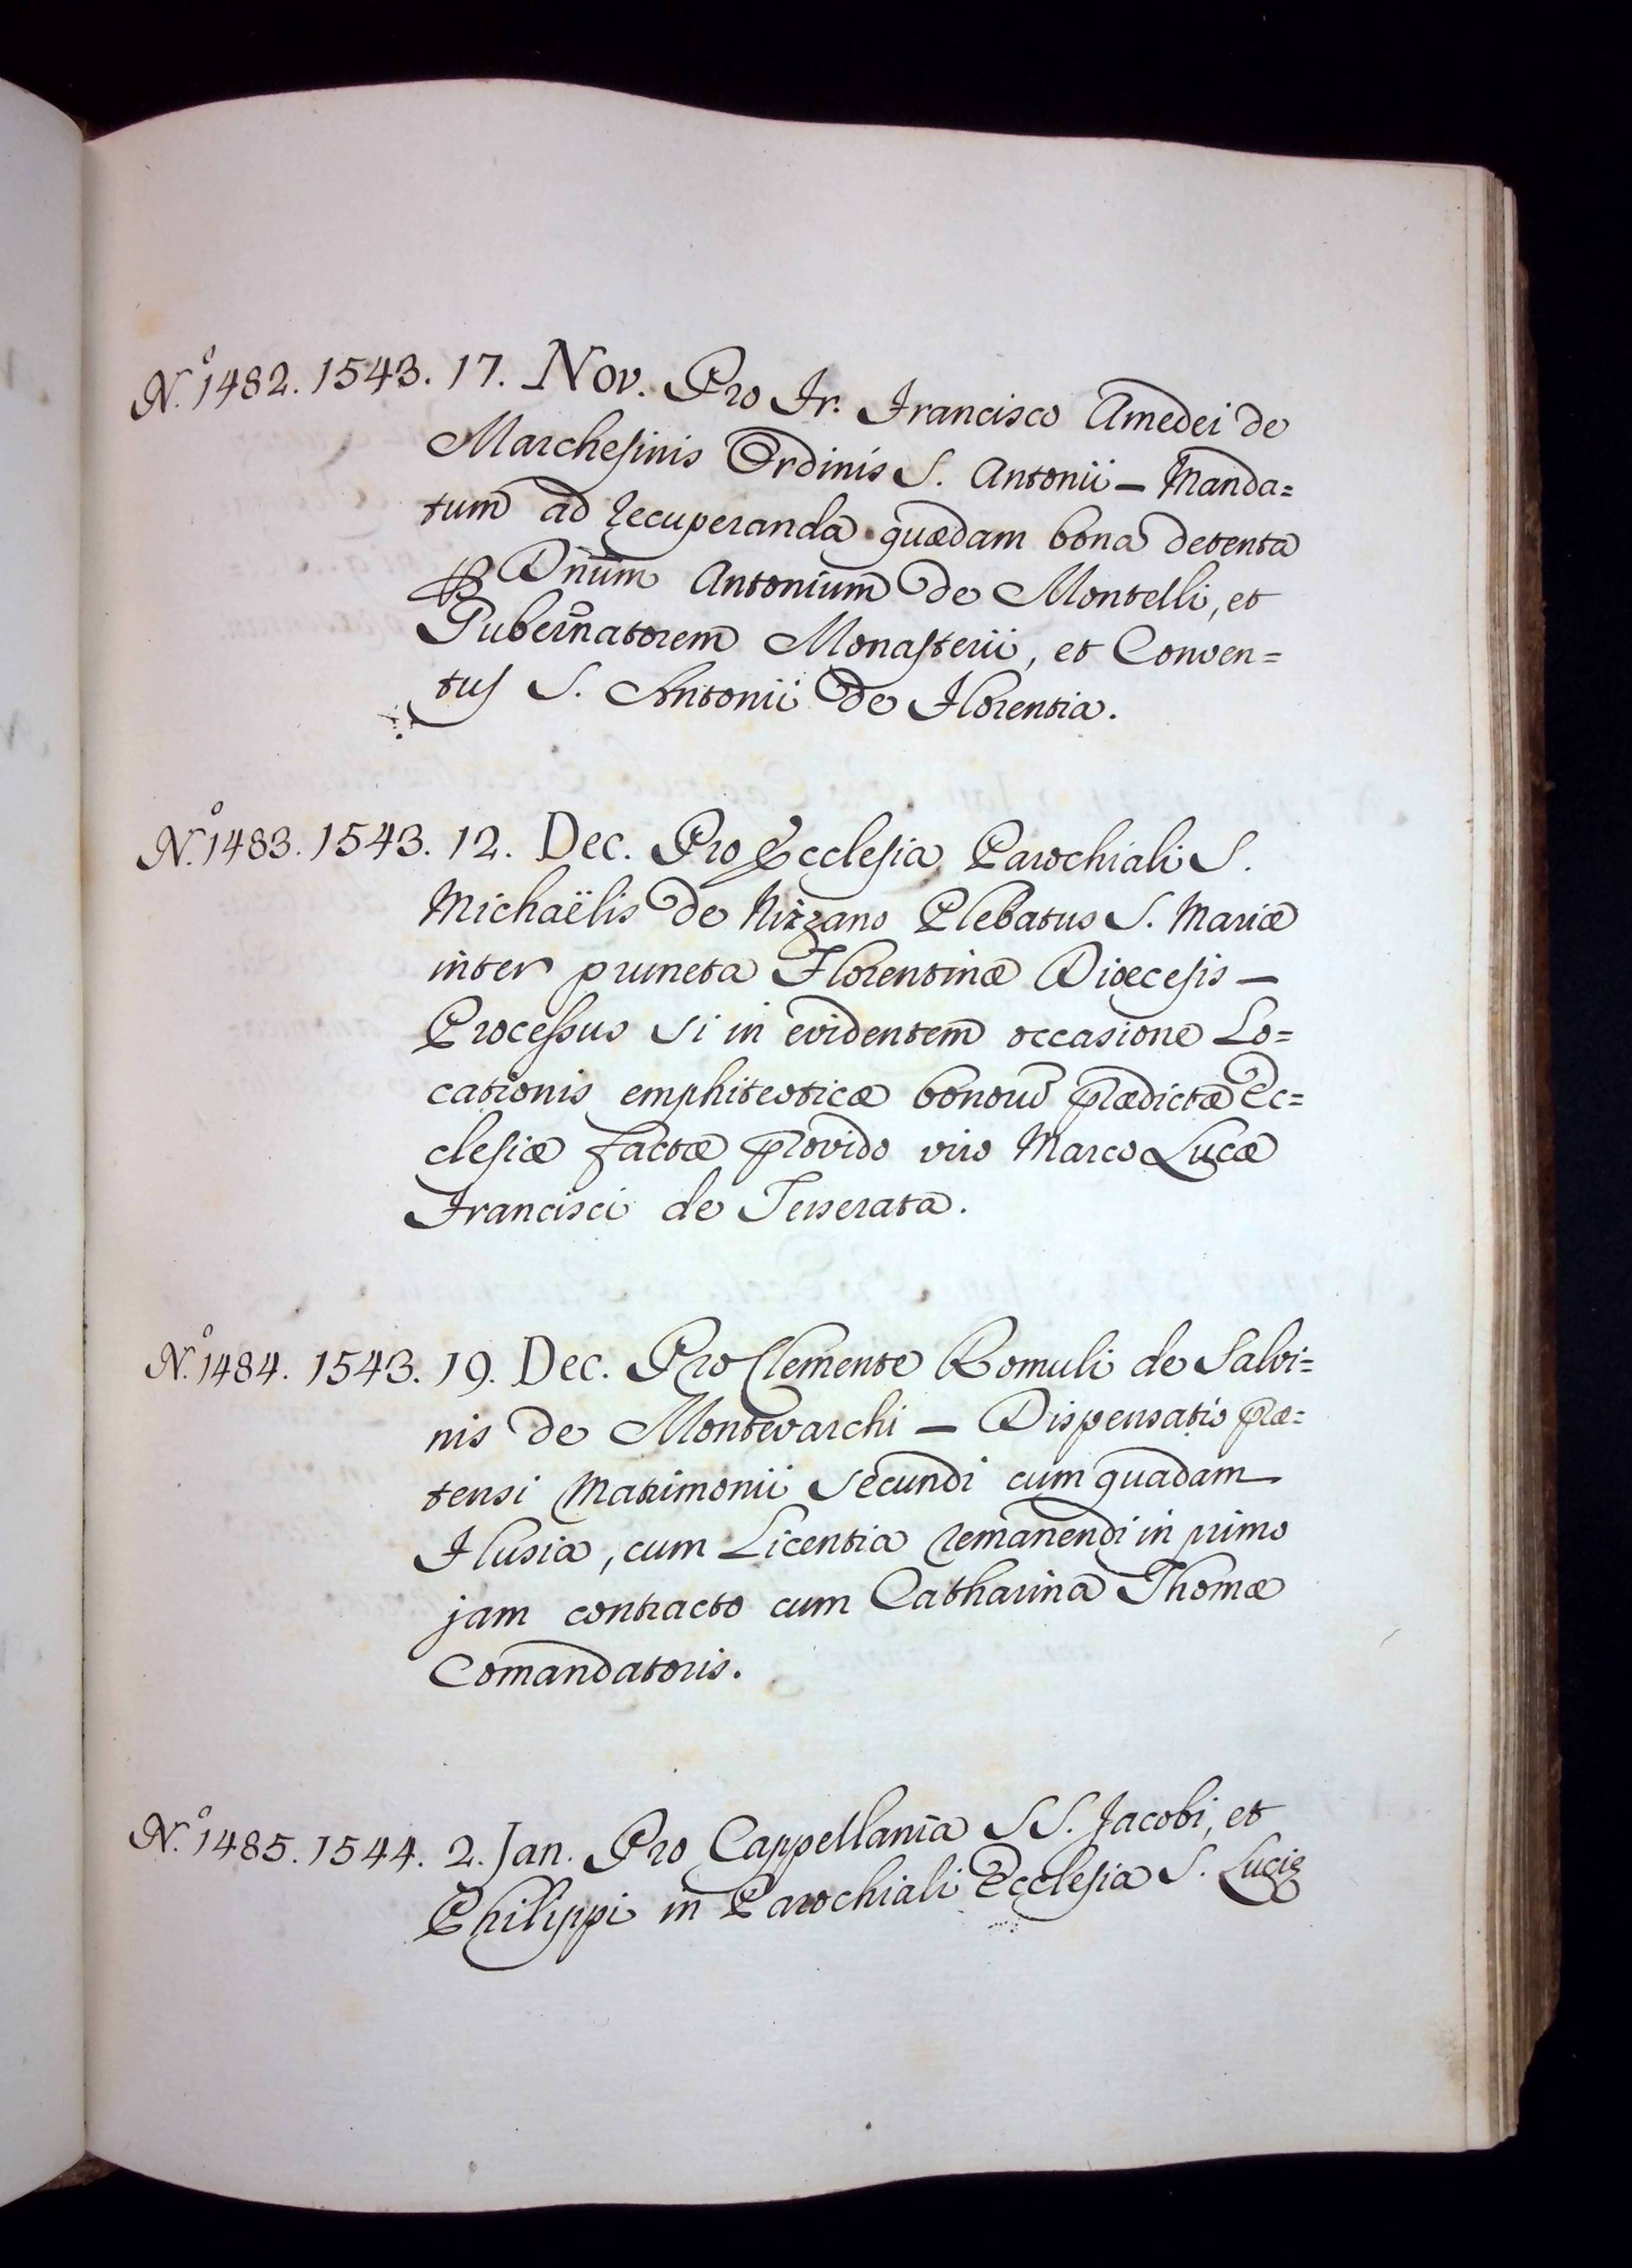 N.º 1482. 1543. 17. Nov. Pro Fr. Francisco Amedei de
Marchesinis Ordinis S. Antonii — Manda=
tum ad recuperanda quædam bona detenta
ꝑ Dñum Antonium de Montelli, et
Guber̃natorem Monasterii, et Conven=
tus S. Antonii de Florentia.
N.º 1483. 1543. 12. Dec. Pro Ecclesia Parochiali S.
Michaëlis de Nizzano Plebatus S. Mariæ
inter pruneta Florentinæ Diœcesis —
Processus si in evidentem occasione Lo=
cationis emphiteoticæ bonorũ prædictæ Ec=
clesiæ factæ provido viro Marco Lucæ
Francisci de Tesserata.
N.º 1484. 1543. 19. Dec. Pro Clemente Romuli de Salvi=
nis de Montevarchi — Dispensatio præ=
tensi Matrimonii secundi cum quadam
Flusia, cum Licentia remanendi in primo
jam contracto cum Catharina Thomæ
Comandatoris.
N.º 1485. 1544. 2. Jan. Pro Cappellania SS. Jacobi, et
Philippi in Parochiali Ecclesia S. Lucię